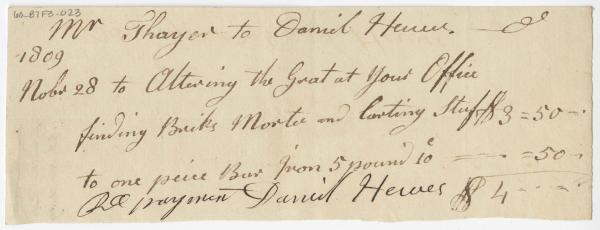 60-B7F3-023
Mr Thayer to Daniel Hewes. Dr
1809
Nobr 28 to Altering the Grat at Your Office
finding Briks Morter and Carting Stuf $3=50
to one peice Bar Iron 5 pound 10c =50
Rd payment Daniel Hewes $4